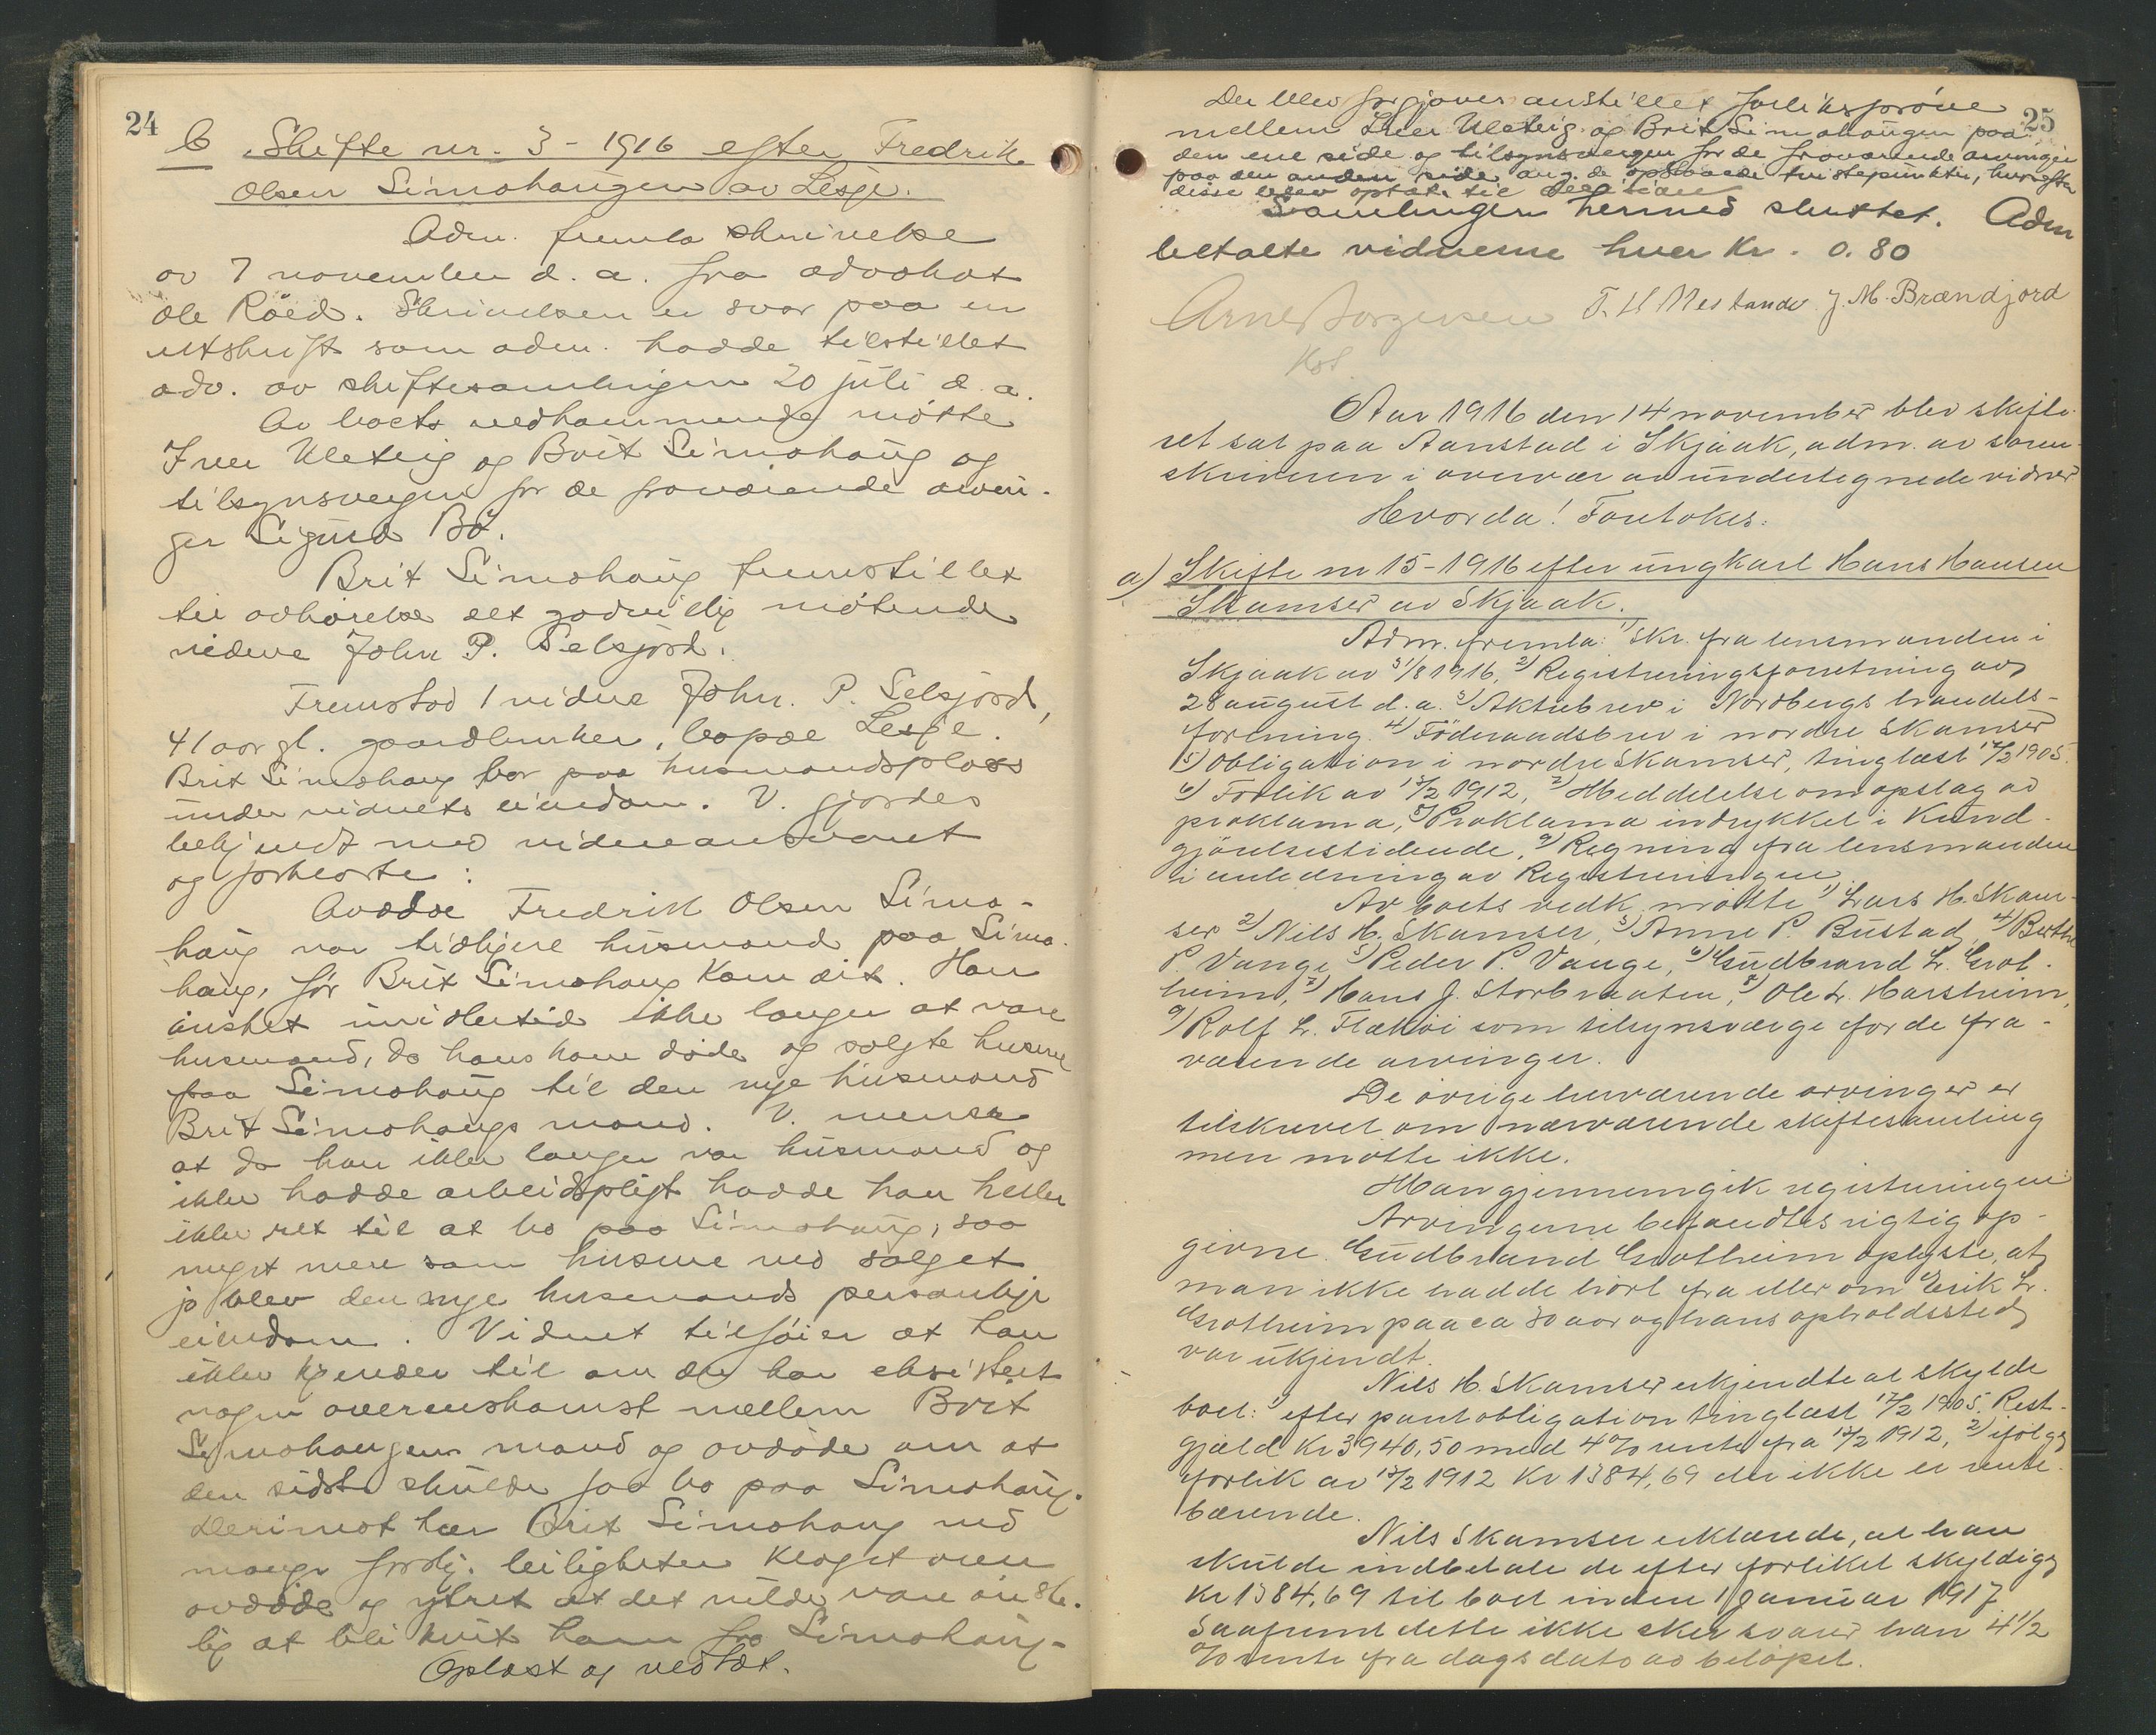 24
b Skifte nr. 3 - 1916 efter Fredrik
Olsen Simohaugen av Lesje.
Adm. fremla skrivelse
av 7 november d. a. fra advokat
Ole Röed. Skrivelsen er svar paa en
utskrift som adm. hadde tilstillet
adv. av skiftesamlingen 20 juli d. a.
Av boets vedkommende mötte
Iver Uleteig og Brit Simohaug og
tilsynsvergen for de fraværende arvin-
ger Sigurd Bö.
Brit Simohaug fremstillet
til avhörelse det godvillig mötende
vidne John P. Selsjord.
Fremstod 1 vidne John. P. Selsjord,
41 aar gl. gaardbruker, bopæl Lesje.
Brit Simohaug bor paa husmandsplass
under vidnets eiendom. V. gjordes
bekjendt med vidneansvaret
og forklarte:
Avdöde Fredrik Olsen Simo-
haug var tidligere husmand paa Simo-
haug, för Brit Simohaug kom dit. Han
önsket imidlertid ikke længer at være
husmand, da hans kone döde og solgte husene
paa Simohaug til den nye husmand
Brit Simohaugs mand. V. mener
at da han ikke længer var husmand og
ikke hadde arbeidspligt hadde han heller
ikke ret til at bo paa Simohaug, saa
meget mere som husene ved salget
jo blev den nye husmands personlige
eiendom. Vidnet tilföier at han
ikke kjender til om der har eksistert
nogen overenskomst mellem Brit
Simohaugens mand og avdöde om at
den sidste skulde faa bo paa Simohaug.
Derimot har Brit Simohaug ved
mange forskj. leiligheter klaget over
avdöde og ytret at det vilde være önske-
lig at bli kvit ham fra Simohaug-
Oplæst og vedtat.
25
Der blev forgjæves anstillet forlikspröve
mellem Iver Uleteig og Brit Simohaugen paa
den ene side og tilsynsvergen for de fraværende arvinger
paa den anden side ang. de opstaaede tvistepunkter, hvorefter
disse blev optat til decision
Samlingen hermed sluttet. Adm
betalte vidnerne hver Kr. 0.80
Arne Jorgensen T. H. Nestande J. M. Brændjord
Kst.
Aar 1916 den 14 november blev skifte-
ret sat paa Aanstad i Skjaak, adm. av soren-
skriveren i overvær av undertegnede vidner
Hvorda! Foretokes:
a) Skifte nr 15-1916 efter ungkarl Hans Hansen
Skamser av Skjaak.
Adm. fremla: 1) Skr. fra lensmanden i
Skjaak av 31/8 1916, 2) Registreringsforretning av
28 august d. a. 3) Aktiebrev i Nordbergs handels-
forening. 4) Föderaadsbrev i nordre Skamser
5) Obligation i nordre Skamser, tinglæst 17/2 1905.
6) Forlik av 13/2 1912, 7) Meddelelse om opslag av
proklama, 8) Proklama indrykket i Kund-
gjörelsestidende, 9) Regning fra lensmanden
i anledning av Registreringen
Av boets vedk. mötte 1) Lars H. Skam-
ser 2) Nils H. Skamser, 3) Anne P. Bustad, 4) Berthe
P. Vange, 5) Peder P. Vange, 6) Gudbrand L. Grot-
heim, 7) Hans J. Storbraaten, 8) Ole L. Harsheim,
9) Rolf L. Flæköi som tilsynsværge for de fra-
værende arvinger.
De övrige herværende arvinger er
tilskrevet om nærværende skiftesamling
men mötte ikke.
Man gjennemgik registreringen
Arvingerne befandtes rigtig op-
givne. Gudbrand Grotheim oplyste, at
man ikke hadde hört fra eller om Erik L.
Grotheim paa ca 30 aar og hans opholdssted
var ukjendt.
Nils H. Skamser erkjendte at skylde
boet: 1) efter pantobligation tinglæst 17/2 1905. Rest-
gjæld Kr 3940,50 med 4% rente fra 13/2 1912, 2) ifölge
forlik av 13/2 1912 Kr 1384,69 der ikke er rente-
bærende.
Nils Skamser erklærede, at han
skulde indbetale de efter forliket skyldige
Kr 1384,69 til boet inden 1 Januar 1917
Saafremt dette ikke sker svarer han 4 1/2
% rente fra dags dato av belöpet.